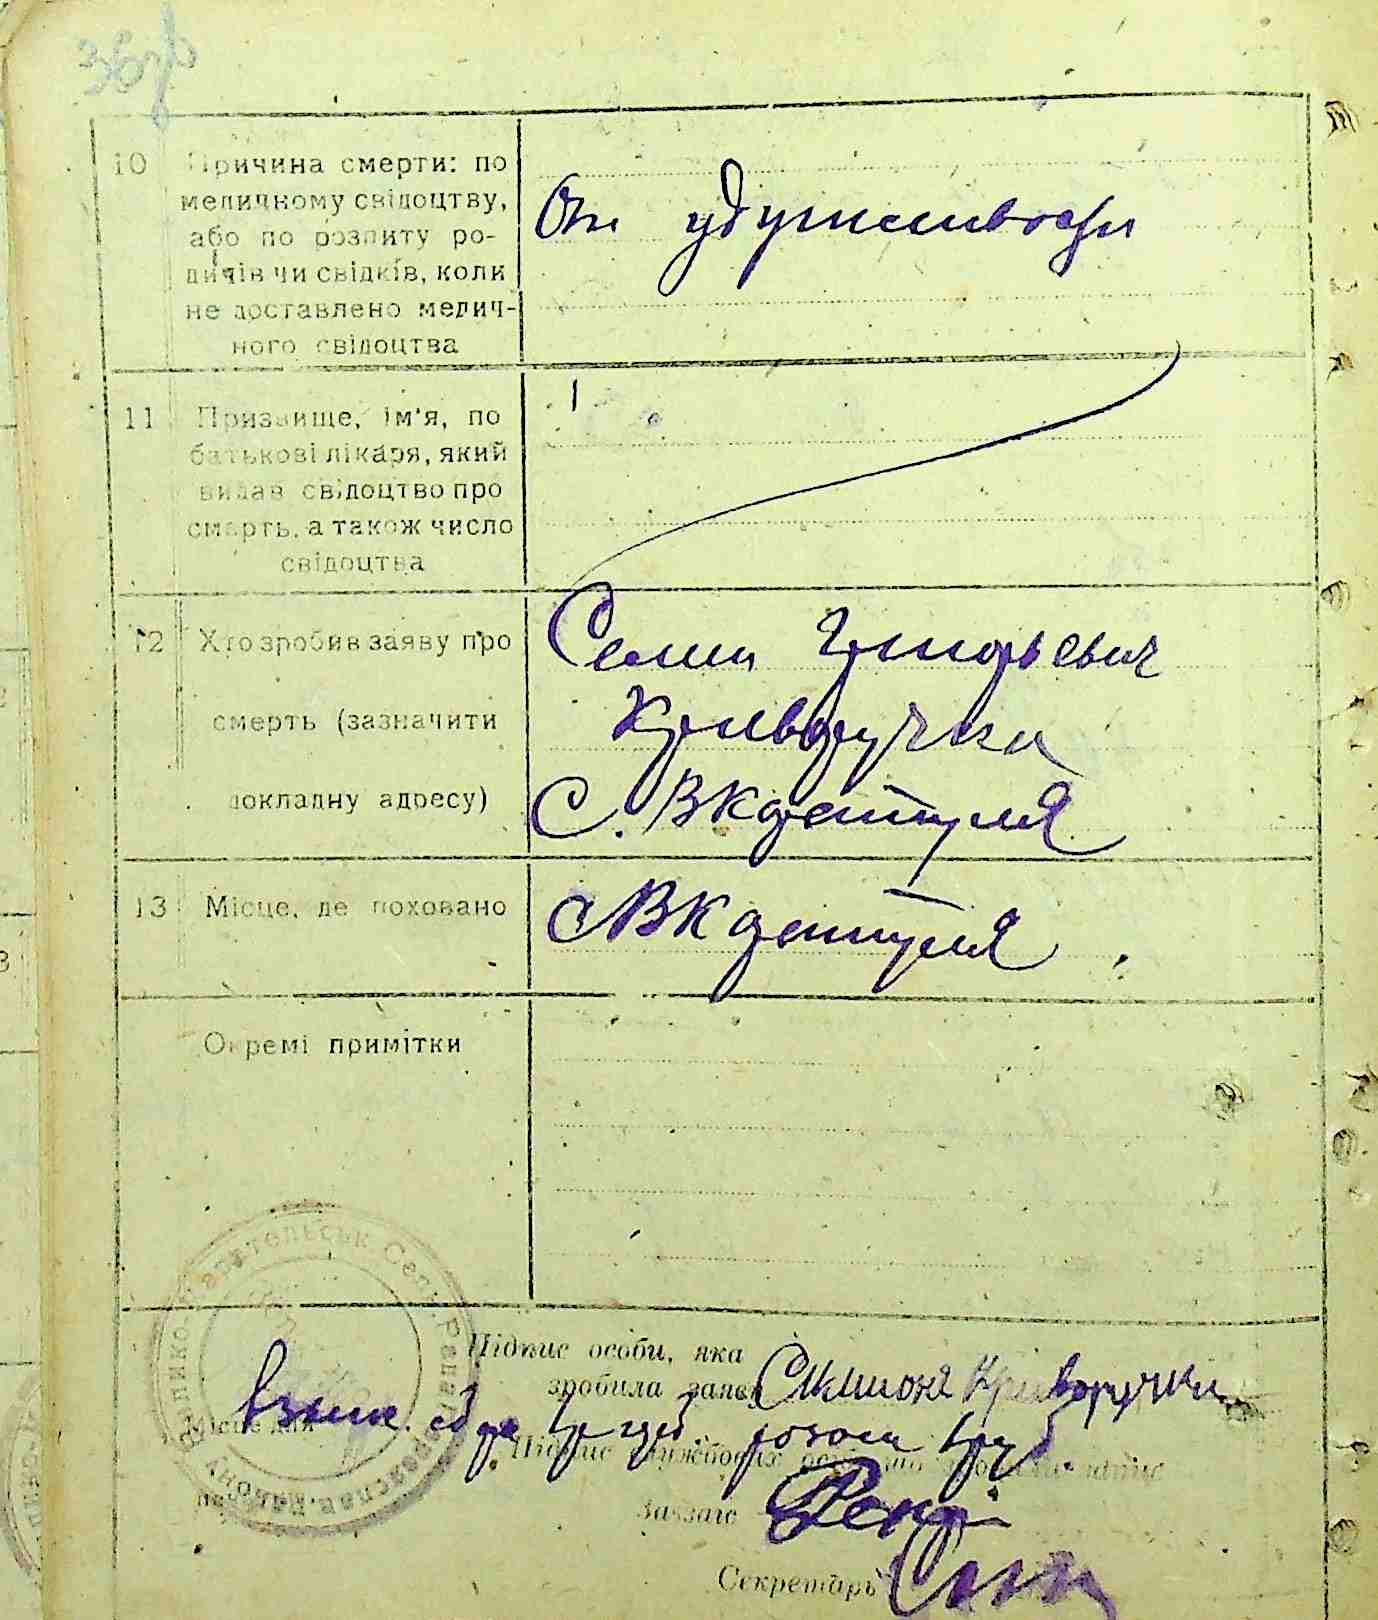 10 Причина смерти: по
медичному свідоцтву,
або по розпиту ро-
дичів чи свідків, коли
не доставлено медич-
ного свідоцтва
От
11 Призвище, ім'я, по
батькові лікаря, який
видав свідоцтво про
смерть, а також число
свідоцтва
12 Хто зробив заяву про
смерть (зазначити
докладну адресу)
Семен Григорьевич
Криворучка
С. ВКаратуля
13 Місце, де поховано
с ВКаратуля
Окремі примітки
Підпис особи, яка
зробила заяву Симиона Криворучки
Місце для
Підпис службових
Завзагс
Секретарь